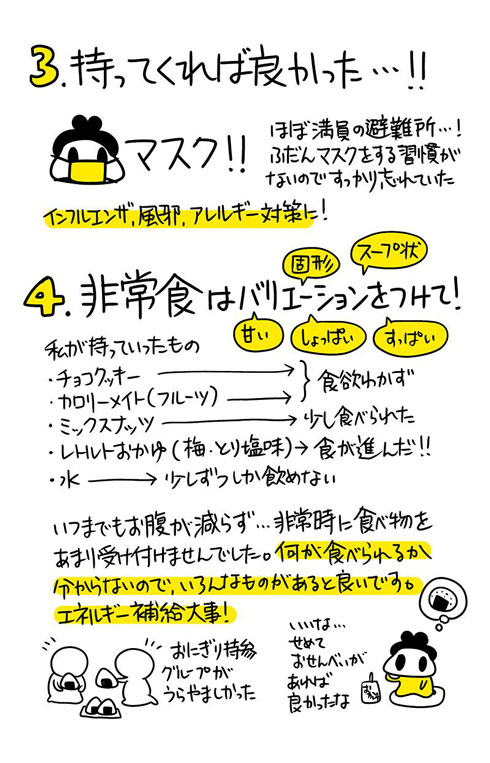 3.持ってくれば良かった…!!
マスク!!
ほぼ満員の避難所…!
ふだんマスクをする習慣が
ないのですっかり忘れていた
インフルエンザ,風邪,アレルギー対策に!
固形
スープ状
4.非常食はバリエーションをつけて!
甘い
しょっぱい
すっぱい
私が持っていったもの
・チョコクッキー → } 食欲わかず
・カロリーメイト(フルーツ) →
・ミックスナッツ → 少し食べられた
・レトルトおかゆ(梅・とり塩味)→ 食が進んだ!!
・水 → 少しずつしか飲めない
いつまでもお腹が減らず…非常時に食べ物を
あまり受け付けませんでした。何が食べられるか
分からないので,いろんなものがあると良いです。
エネルギー補給大事!
おにぎり持参
グループが
うらやましかった
いいな…
せめて
おせんべいが
あれば
良かったな